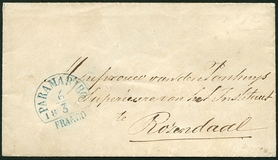 PARAMARIBO
FRANCO
Mejufvrouw van den
Superieure van het Instituut
te
Rozendaal